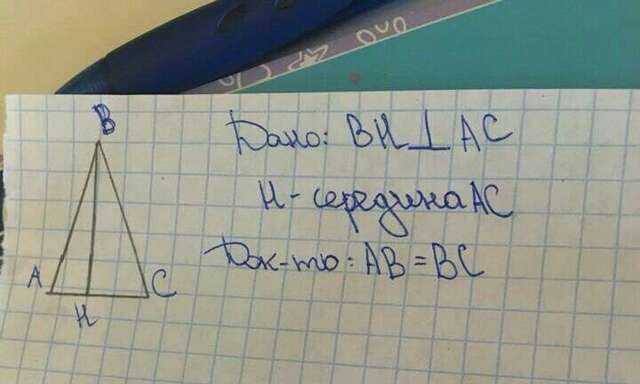 B
Дано: BH⊥AC
H - середина AC
Док-то: AB = BC
A
C
H